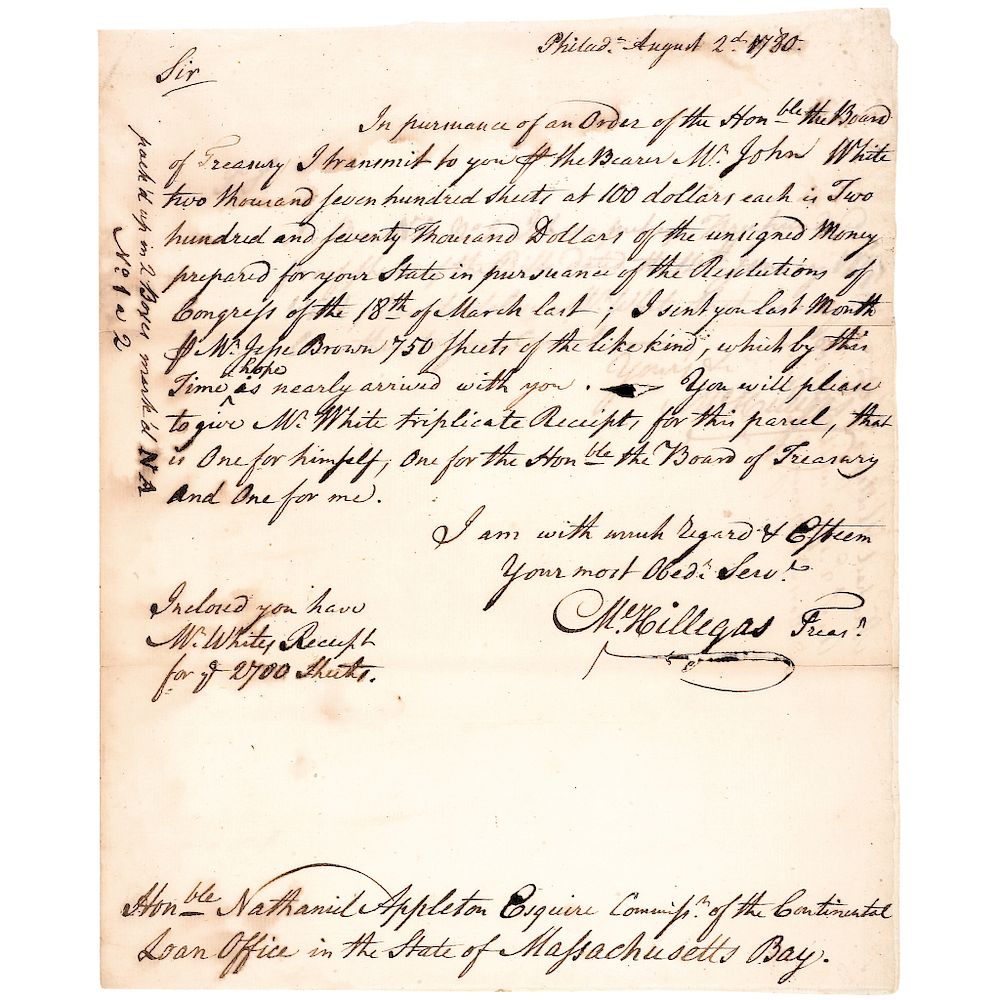 Philad.ᵃ August 2.d 1780.
Sir
In pursuance of an Order of the Hon.ble the Board
of Treasury I transmit to you ⅌ the Bearer Mr. John White
two thousand seven hundred Sheets at 100 dollars each is Two
hundred and seventy Thousand Dollars of the unsigned Money
prepared for your State in pursuance of the Resolutions of
Congress of the 18th of March last; I sent you last Month
⅌ Mr. Jesse Brown 750 Sheets of the like kind, which by this
Time ^hope is nearly arrived with you. You will please
to give Mr. White triplicate Receipts, for this parcel, that
is One for himself, One for the Hon.ble the Board of Treasury
And One for me.
I am with much regard & Esteem
Your most Obed.t Serv.t
M. Hillegas Treas.r
Inclosed you have
Mr. Whites Receipt
for ye 2700 Sheets.
pack'd up in 2 Boxes mark'd N A
No. 1 a 2
Hon.ble Nathaniel Appleton Esquire Commiss.r of the Continental
Loan Office in the State of Massachusetts Bay.